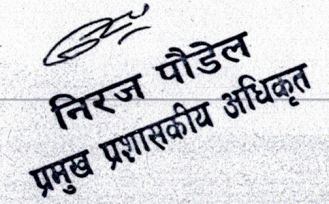 निरज पौडेल
प्रमुख प्रशासकीय अधिकृत